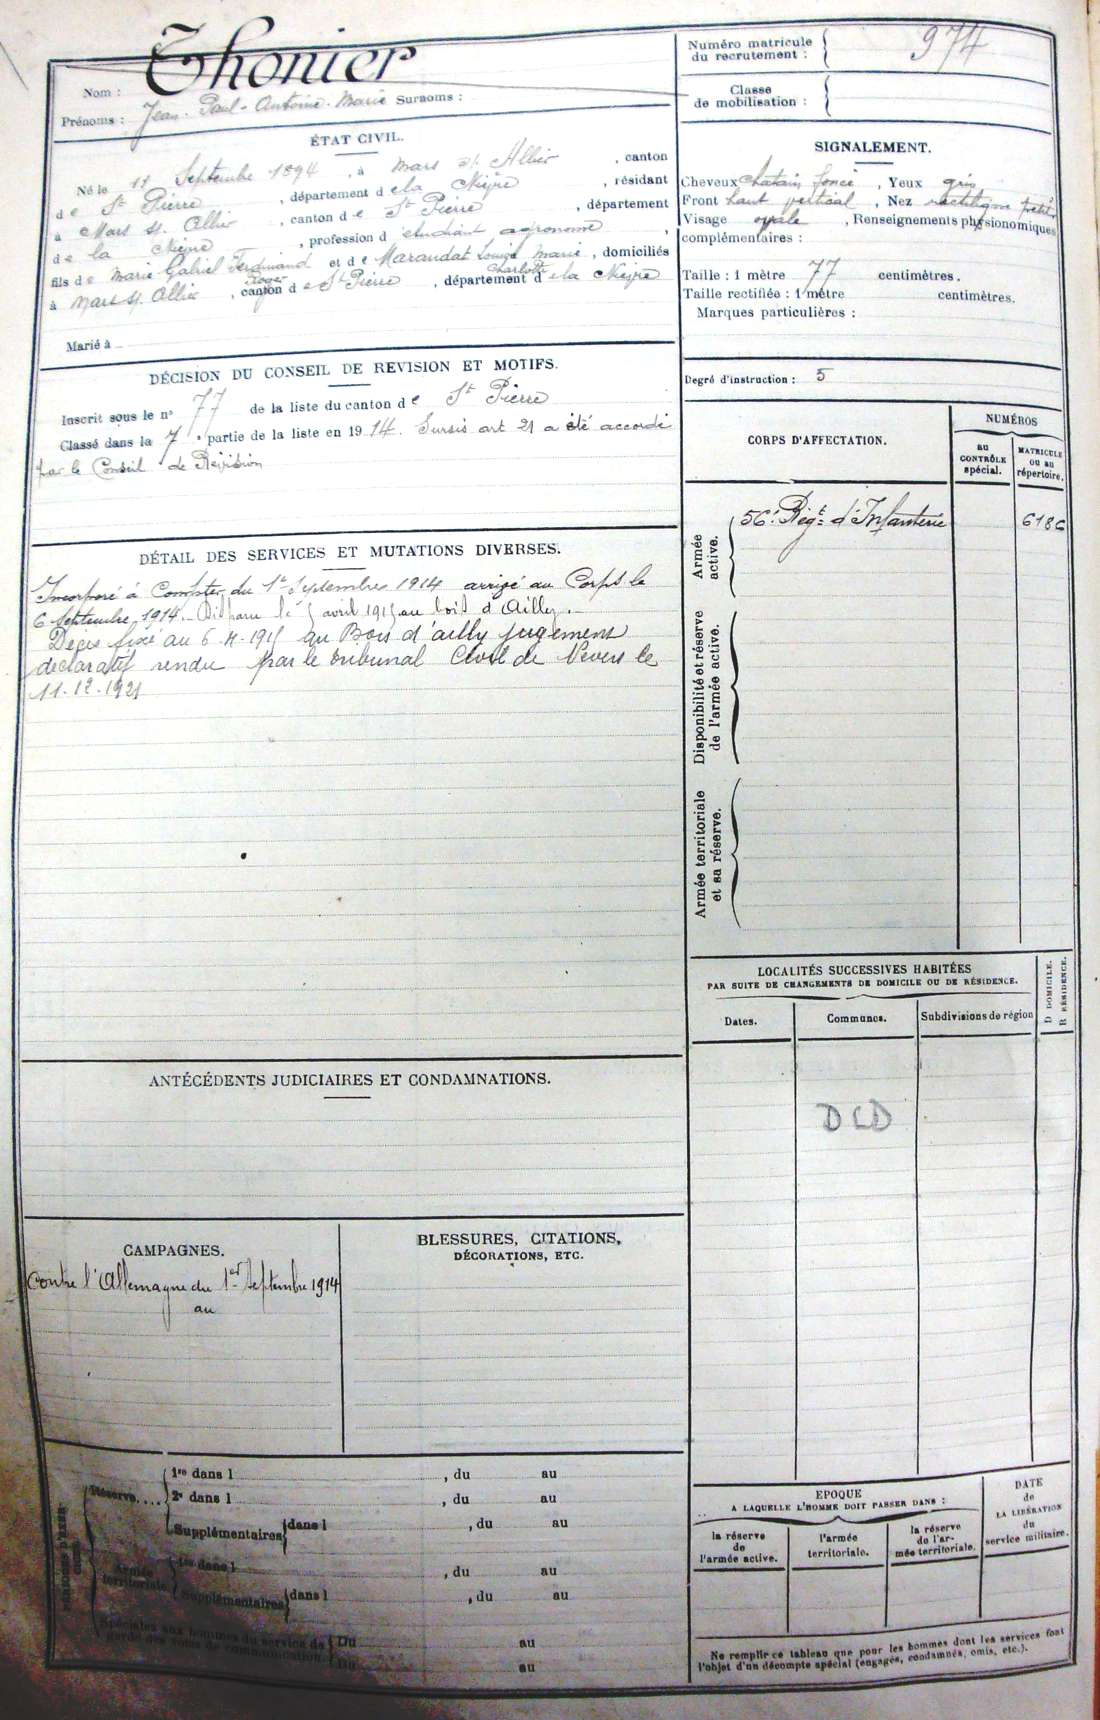 Nom : Thonier
Prénoms : Jean-Paul-Antoine-Marie Surnoms :
ÉTAT CIVIL.
Né le 11 Septembre 1894, à Mars s/. Allier, canton
de St Pierre, département de la Nièvre, résidant
à Mars s/. Allier, canton de St Pierre, département
de la Nièvre, profession d'étudiant agronome,
fils de Marie Gabriel Ferdinand Roger et de Marandat Louise Marie Charlotte, domiciliés
à Mars s/. Allier, canton de St Pierre, département de la Nièvre
Marié à
DÉCISION DU CONSEIL DE REVISION ET MOTIFS.
Inscrit sous le n° 77 de la liste du canton de St Pierre
Classé dans la 7e partie de la liste en 1914. Sursis art 21 a été accordé
par le Conseil de Révision
DÉTAIL DES SERVICES ET MUTATIONS DIVERSES.
Incorporé à Compter du 1er Septembre 1914 arrivé au Corps le
6 Septembre 1914. Disparu le 5 avril 1915 au bois d'Ailly.
Décès fixé au 6.4.1915 au Bois d'ailly jugement
déclaratif rendu par le tribunal Civil de Nevers le
11.12.1921
ANTÉCÉDENTS JUDICIAIRES ET CONDAMNATIONS.
CAMPAGNES.
Contre l'Allemagne du 1er Septembre 1914
au
BLESSURES, CITATIONS,
DÉCORATIONS, ETC.
Réserve....
1re dans l , du au
2e dans l , du au
Supplémentaires dans l , du au
Armée
territoriale
1re dans l , du au
Supplémentaires dans l , du au
Spéciales aux hommes du service de
garde des voies de communication
Du au
Du au
Numéro matricule
du recrutement : 974
Classe
de mobilisation :
SIGNALEMENT.
Cheveux chatain foncé, Yeux gris
Front haut vertical, Nez rectiligne
Visage ovale, Renseignements physionomiques
complémentaires :
Taille : 1 mètre 77 centimètres.
Taille rectifiée : 1 mètre centimètres.
Marques particulières :
Degré d'instruction : 5
CORPS D'AFFECTATION.
NUMÉROS
au
CONTRÔLE
spécial.
MATRICULE
ou au
répertoire.
Armée
active.
56e Régt d'Infanterie 6186
Disponibilité et réserve
de l'armée active.
Armée territoriale
et sa réserve.
LOCALITÉS SUCCESSIVES HABITÉES
PAR SUITE DE CHANGEMENTS DE DOMICILE OU DE RÉSIDENCE.
D DOMICILE.
R RÉSIDENCE.
Dates.
Communes.
Subdivisions de région
DLD
EPOQUE
A LAQUELLE L'HOMME DOIT PASSER DANS :
la réserve
de
l'armée active.
l'armée
territoriale.
la réserve
de l'ar-
mée territoriale.
DATE
de
LA LIBÉRATION
du
service militaire.
Ne remplir ce tableau que pour les hommes dont les services font
l'objet d'un décompte spécial (engagés, condamnés, omis, etc.).